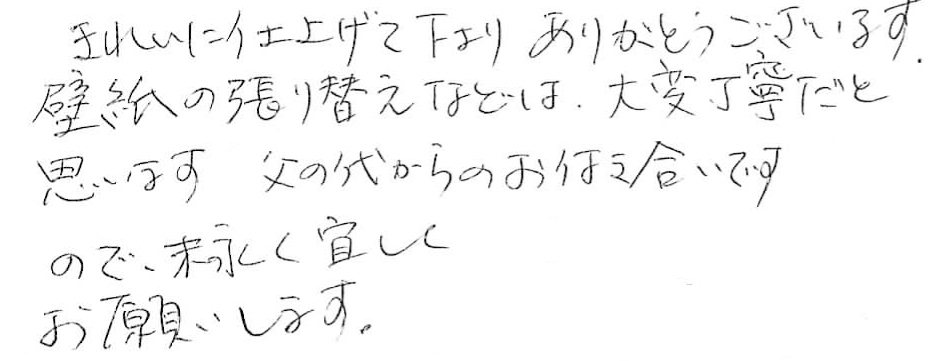 きれいに仕上げて下さり ありがとうございます.
壁紙の張り替えなどは、大変丁寧だと
思います 父の代からのお付き合いです
ので、末永く宜しく
お願いします。